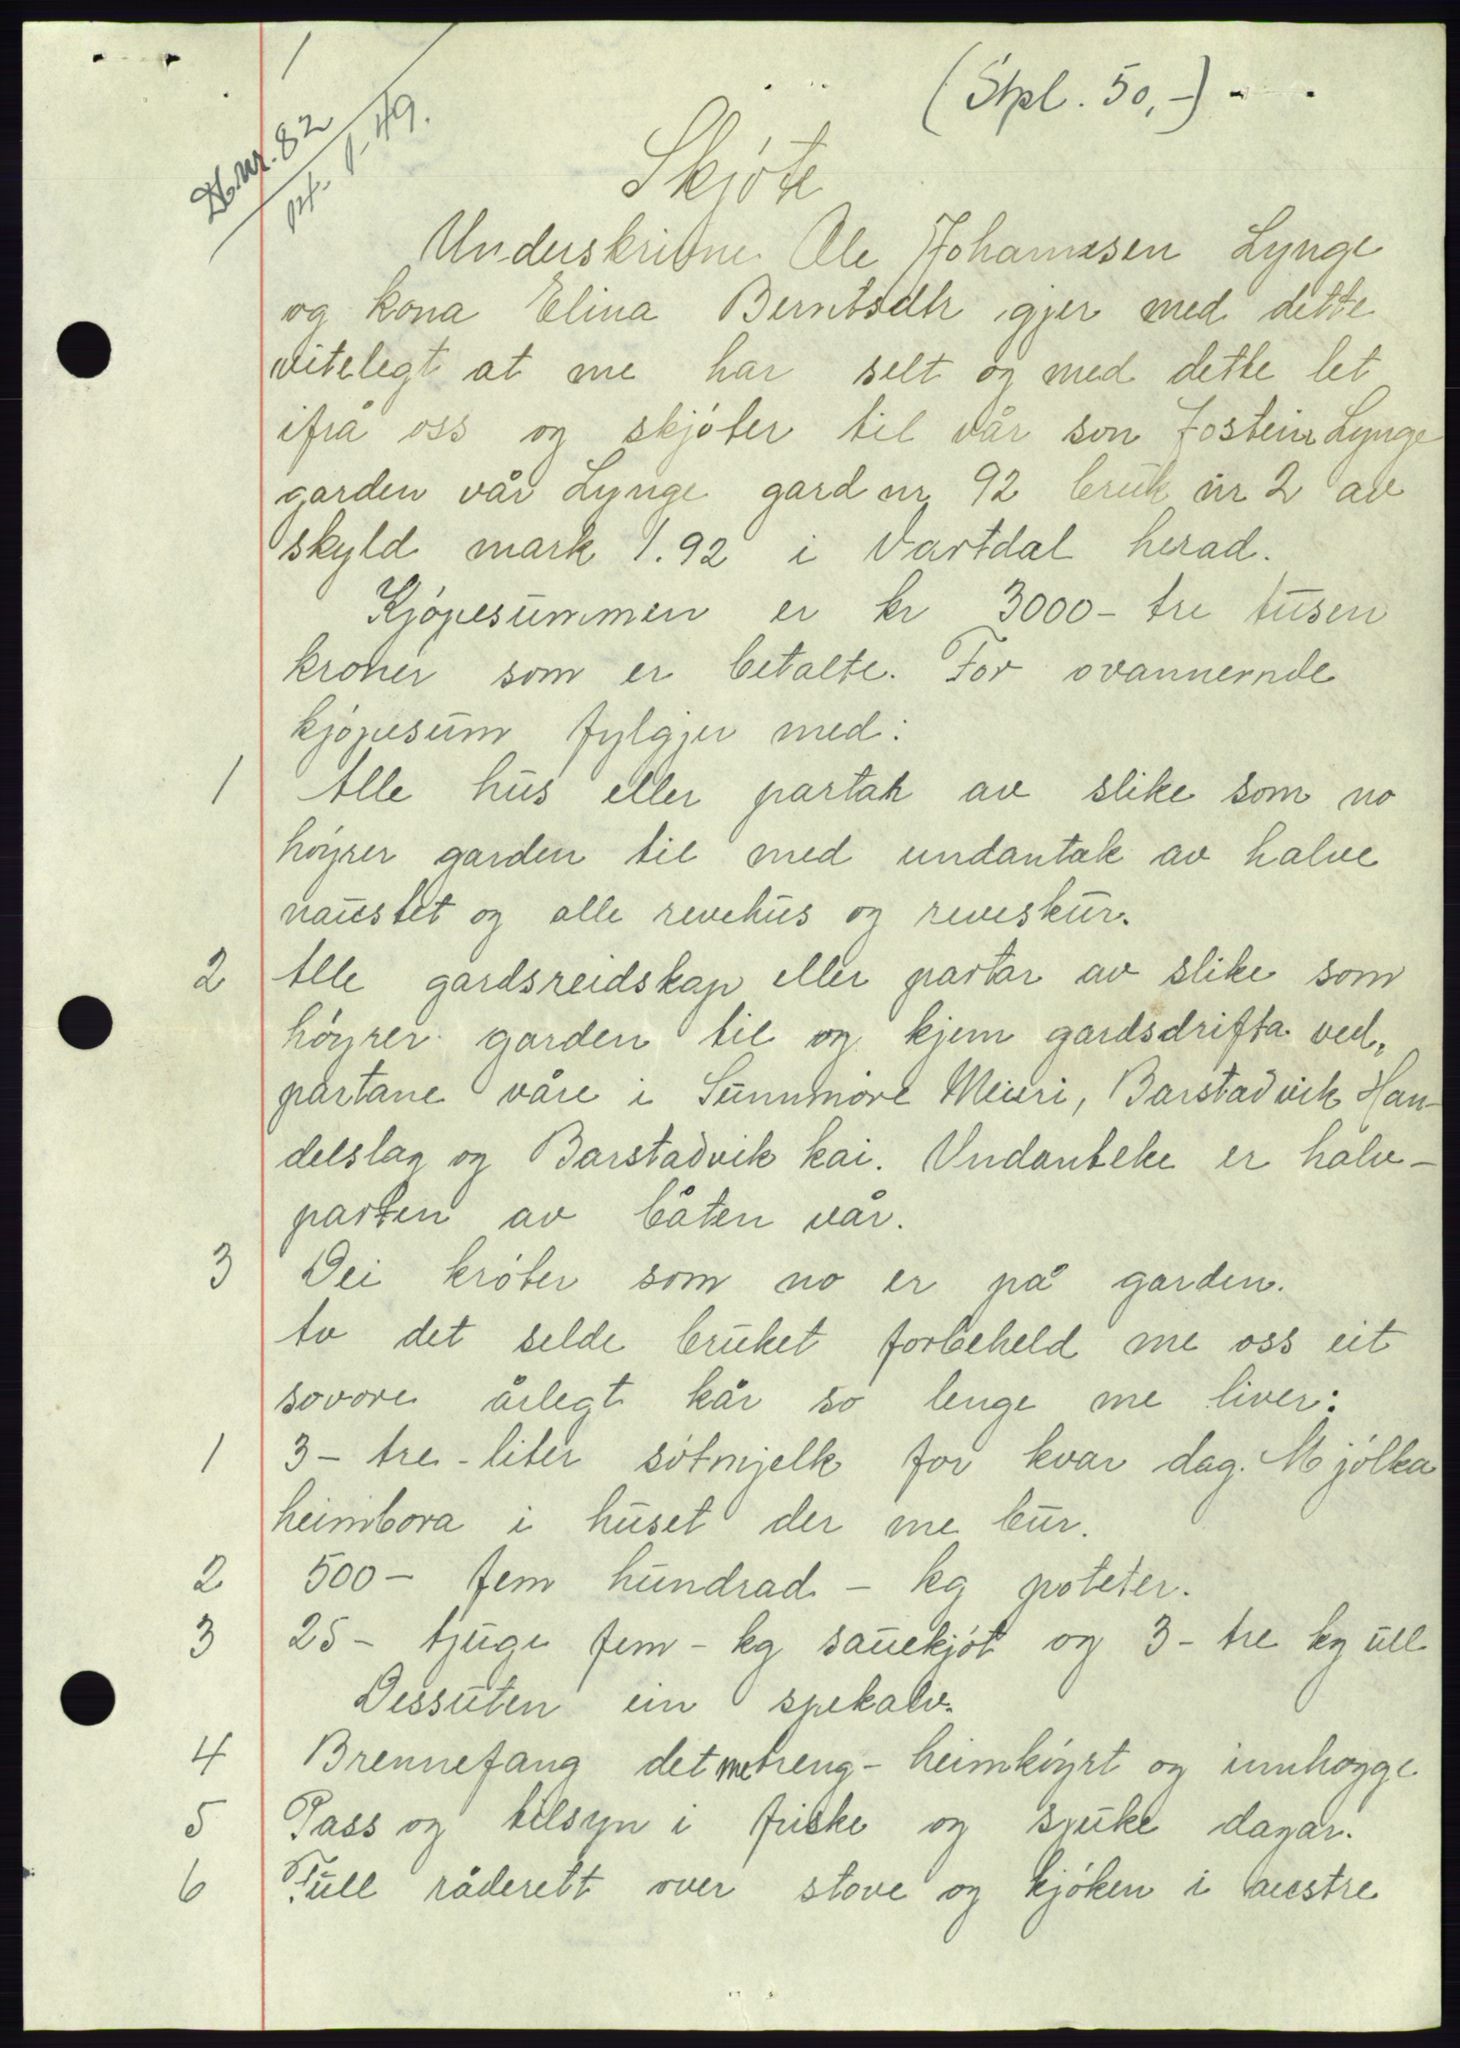 1
(Stpl. 50,-)
Db.nr. 82
49.
Skjøte
Underskrivne Ole Johannesen Lynge
og kona Elina Berntsdtr gjer med dette
vitelegt at me har selt og med dette let
ifrå oss og skjøter til vår son Jostein Lynge
garden vår Lynge gard nr 92 bruk nr 2 av
skyld mark 1.92 i Vartdal herad.
Kjøpesummen er kr 3000- tre tusen
kroner som er betalte. For ovannemde
kjøpesum fylgjer med:
1 Alle hus eller partar av slike som no
høyrer garden til med undantak av halve
naustet og alle revehus og reveskur.
2 Alle gardsreidskap eller partar av slike som
høyrer garden til og kjem gardsdrifta ved,
partane våre i Sunnmøre Meieri, Barstadvik Han-
delslag og Barstadvik kai. Undanteke er halv-
parten av båten vår.
3 Dei krøter som no er på garden.
Av det selde bruket forbeheld me oss eit
sovore årlegt kår so lenge me liver:
1 3- tre - liter søtmjelk for kvar dag. Mjølka
heimbora i huset der me bur.
2 500- fem hundrad - kg poteter.
3 25- tjuge fem - kg sauekjøt og 3- tre kg ull
Dessuten ein spekalv.
4 Brennefang det me treng - heimkøyrt og innhogge
5 Pass og tilsyn i friske og sjuke dagar.
6 Full råderett over stove og kjøken i austre